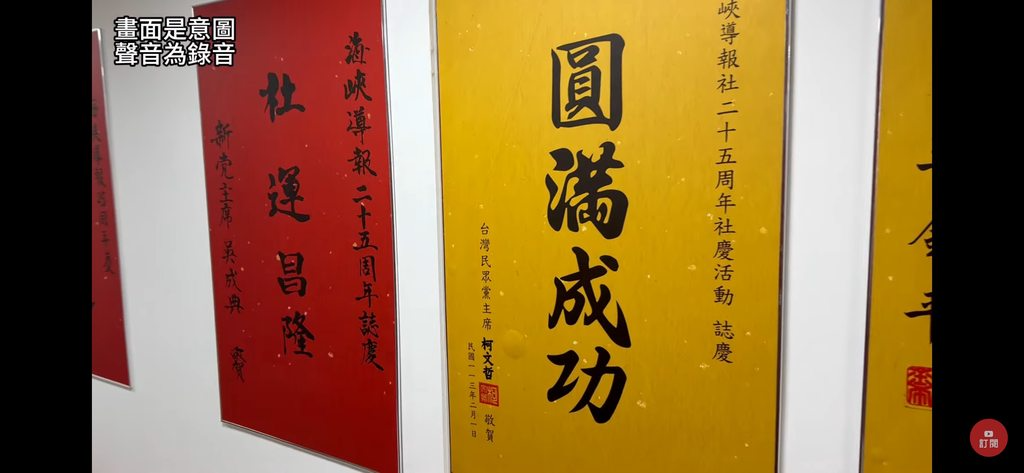 畫面是意圖
聲音為錄音
峽導報社二十五周年社慶活動 誌慶
圓滿成功
台灣民眾黨主席 柯文哲 敬賀
民國一一三年二月一日
海峽導報二十五周年誌慶
社運昌隆
新党主席 吳成典 敬賀
訂閱